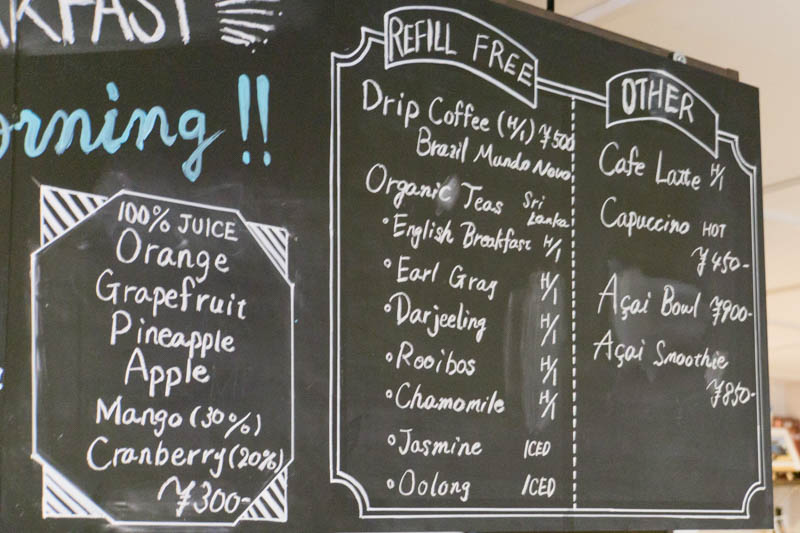 AKFAST
orning!!
100% JUICE
Orange
Grapefruit
Pineapple
Apple
Mango (30%)
Cranberry (20%)
¥300-
REFILL FREE
Drip Coffee (H/I) ¥500
Brazil Mundo Novo
Organic Teas Sri Lanka
• English Breakfast H/I
• Earl Gray H/I
• Darjeeling H/I
• Rooibos H/I
• Chamomile H/I
• Jasmine ICED
• Oolong ICED
OTHER
Cafe Latte H/I
Capuccino HOT
¥450-
Açai Bowl ¥900-
Açai Smoothie
¥850-